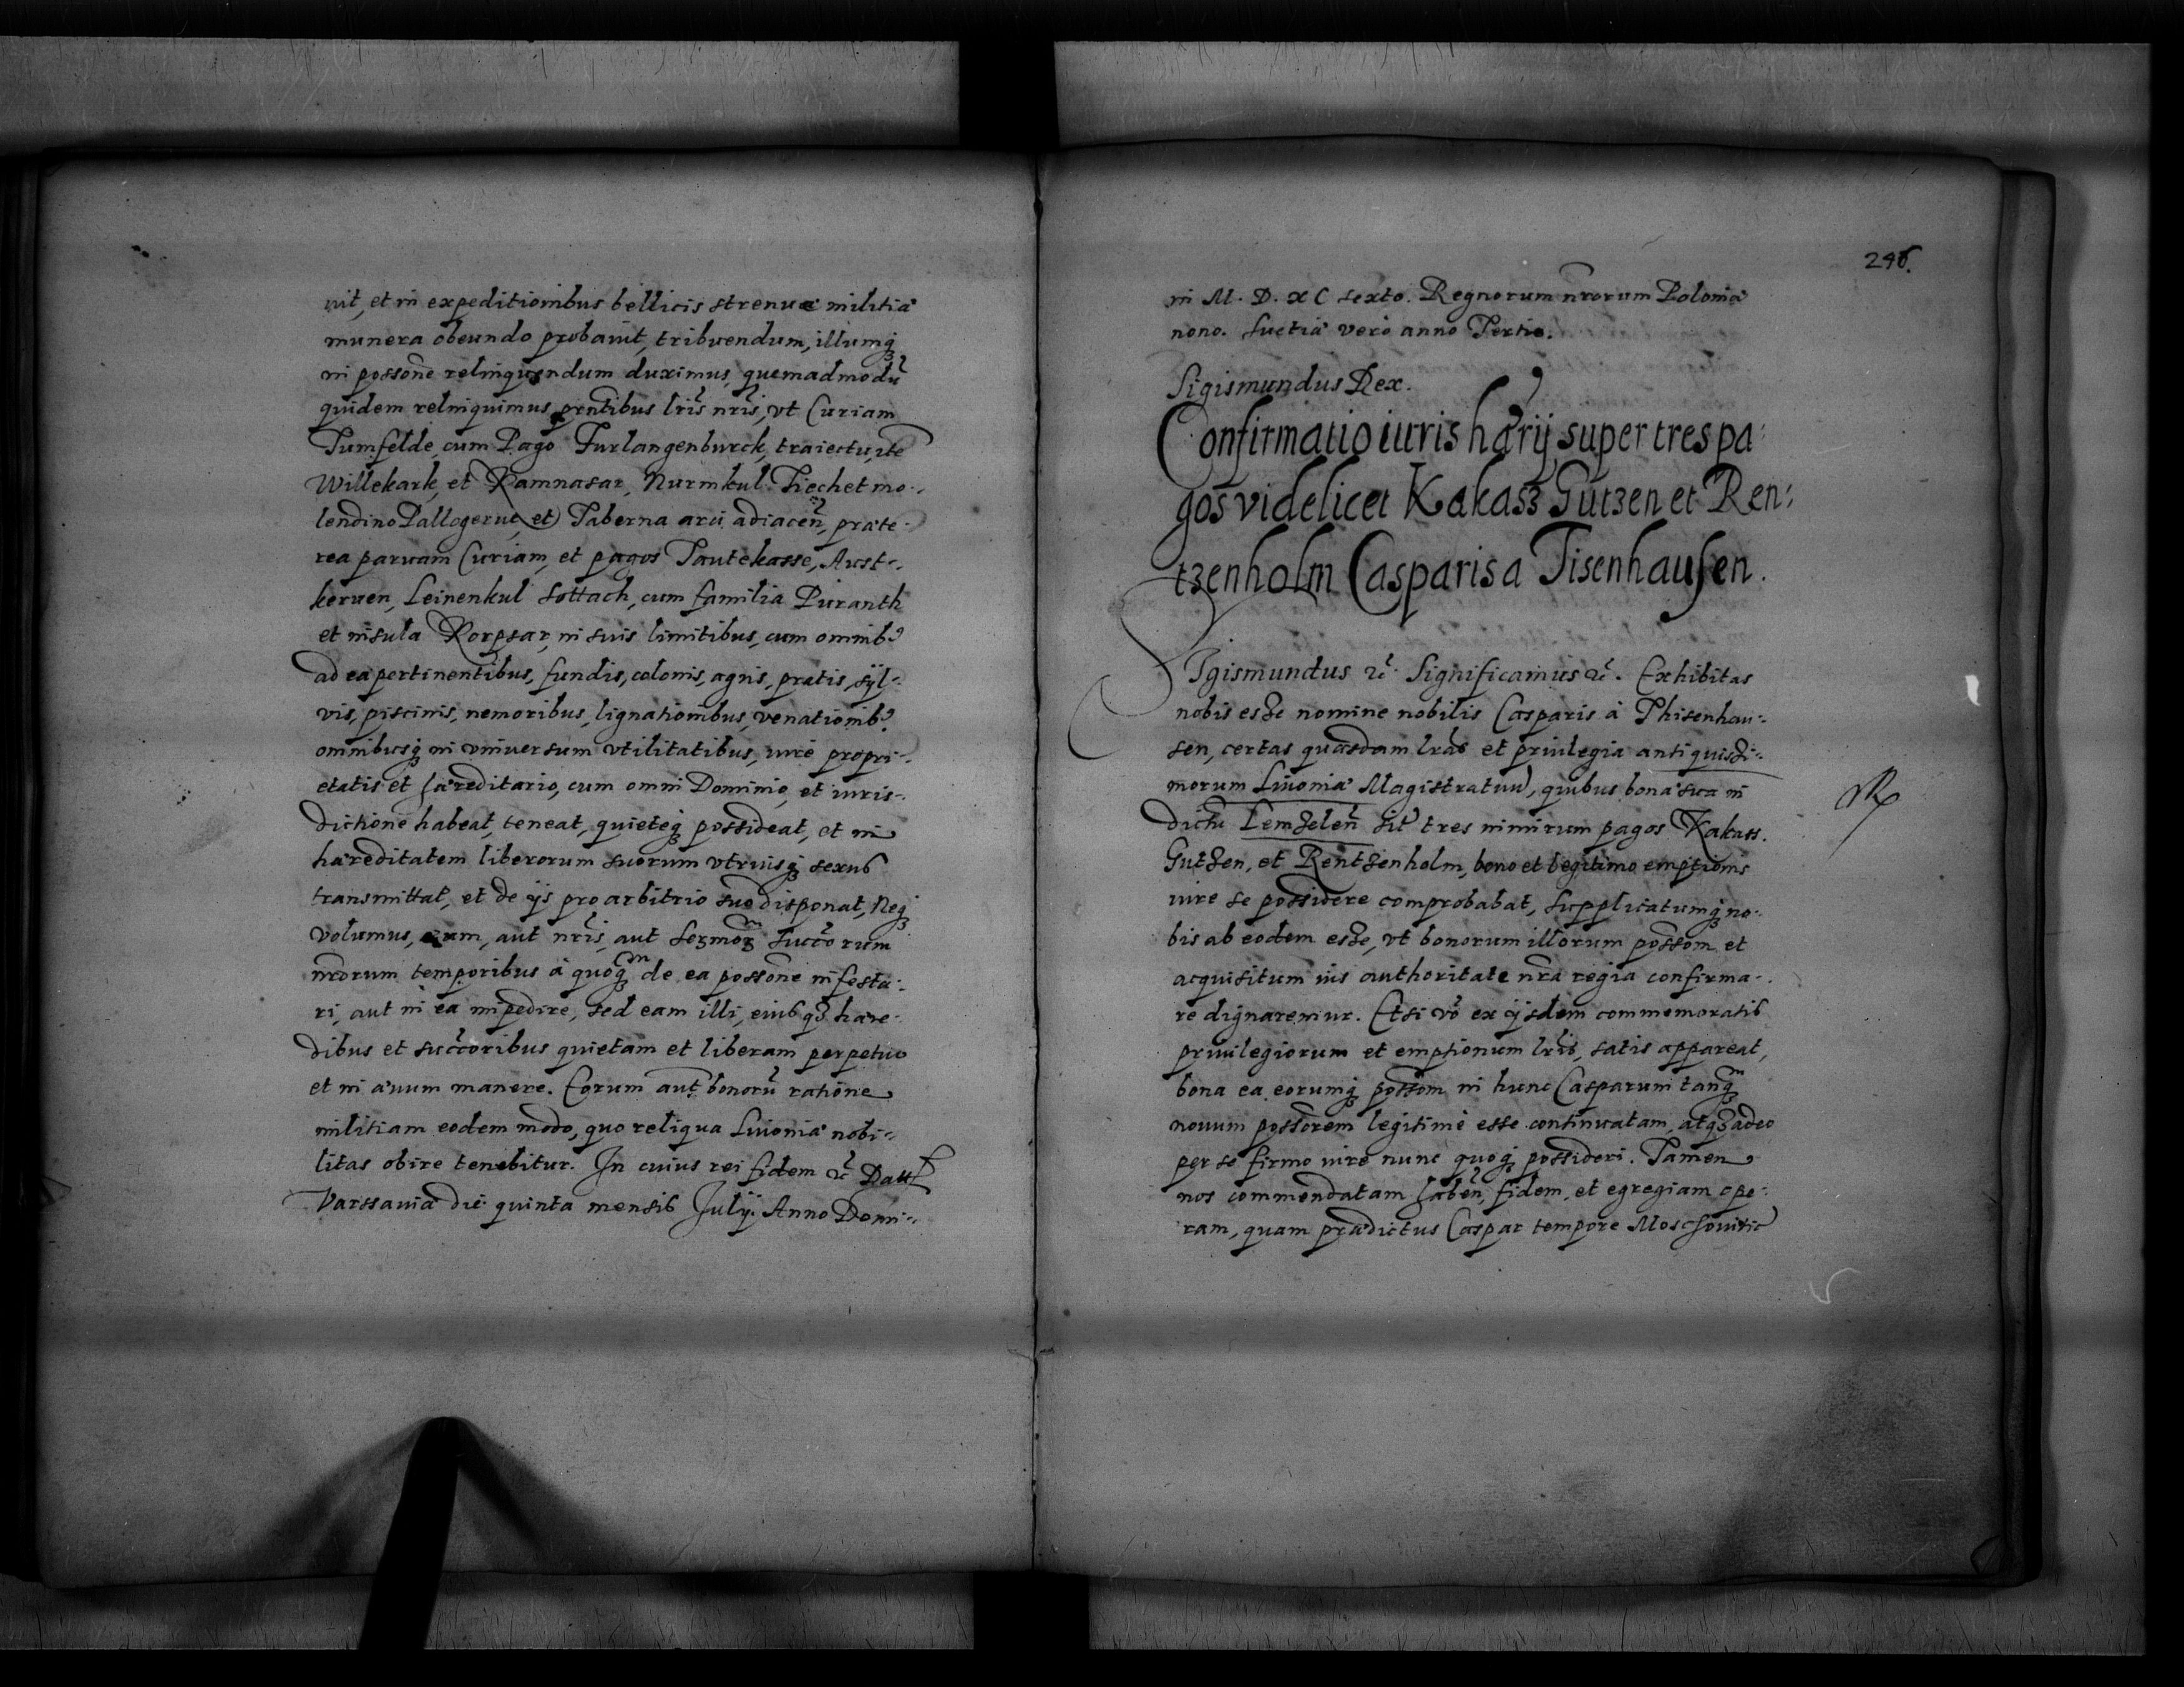 uit, et in expeditionibus bellicis strenuæ militiæ
munera obeundo probauit, tribuendum, illumq3
in possone relinquendum duximus, quemadmodu
quidem relinquimus prntibus lris nris, vt Curiam
Tumfelde, cum Pago Furlangenburck, traiectu, ite
Willekark, et Ramnasar, Nurmkul Tiechet mo-
lendino Pallogerue, et Taberna arci adiacen, præte-
rea paruam Curiam, et pagos Tautekasse, Aust-
keruen, Leinenkul Sottach, cum familia Puranth
et insula Rorpsar, in suis limitibus, cum omnib9
ad ea pertinentibus, fundis, colonis, agris, pratis, syl-
vis, piscinis, nemoribus, lignationibus, venationib9
omnibusq3 in vniuersum vtilitatibus, iure propri-
etatis et hæreditario, cum omni Dominio, et iuris-
dictione habeat, teneat, quieteq3 possideat, et in
hæreditatem liberorum suorum vtriusq3 sexus
transmittat, et de ijs pro arbitrio suo disponat, Neq3
volumus, eum, aut nris, aut Sermor Succorum
nrorum temporibus à quoq3 de ea possone infesta-
ri, aut in ea impedire, sed eam illi, eiusq3 hære-
dibus et succoribus quietam et liberam perpetuo
et in æuum manere. Eorum aut bonoru ratione
militiam eodem modo, quo reliqua Liuoniæ nobi-
litas obire tenebitur. In cuius rei fidem &c Datt
Varssauiæ die quinta mensis Julij. Anno Domi-
246.
ni M. D. XC sexto. Regnorum nrorum Poloniæ
nono. Suetiæ verò anno Tertio.
Sigismundus Rex.
Confirmatio iuris hærij super tres pa-
gos videlicet Kakasz Gutzen et Ren-
tzenholm Casparis a Tisenhausen.
SIgismundus &c. Significamus &c. Exhibitas
nobis esse nomine nobilis Casparis à Thisenhau-
sen, certas quasdam lras et priuilegia antiquissi-
morum Liuoniæ Magistratuu, quibus bona sua in
dictu Lemselen sit tres nimirum pagos Kakass.
Gutzen, et Rentzenholm, bono et legitimo emptionis
iure se possidere comprobabat, Supplicatumq3 no-
bis ab eodem esse, vt bonorum illorum possom et
acquisitum ius authoritate nra regia confirma-
re dignaremur. Etsi vo ex ijsdem commemoratis
priuilegiorum et emptionum lris, satis appareat,
bona ea eorumq3 possom in hunc Casparum tanq3
nouum possorem legitimè esse continuatam, atq3 adeo
per se firmo iure nunc quoq3 possideri. Tamen
nos commendatam haben, fidem, et egregiam ope-
ram, quam prædictus Caspar tempore Moschouitic